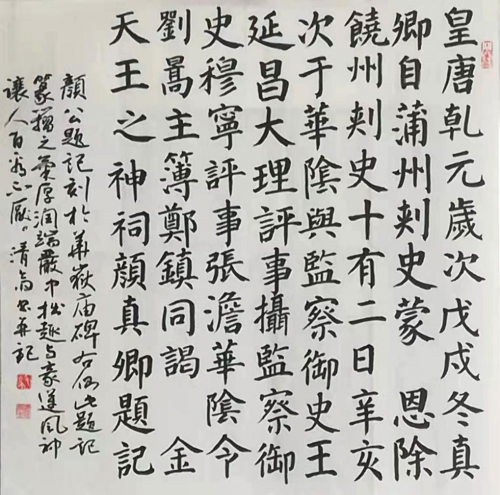 皇唐乾元歲次戊戌冬真
卿自蒲州刾史蒙 恩除
饒州刾史十有二日辛亥
次于華陰與監察御史王
延昌大理評事攝監察御
史穆寧評事張澹華陰令
劉暠主簿鄭鎮同謁 金
天王之神祠顔真卿題記
顏公題記刻於華嶽庙碑右側此題記
篆籀之氣厚润端嚴中拙趣与豪逸风神
讓人百看不厭